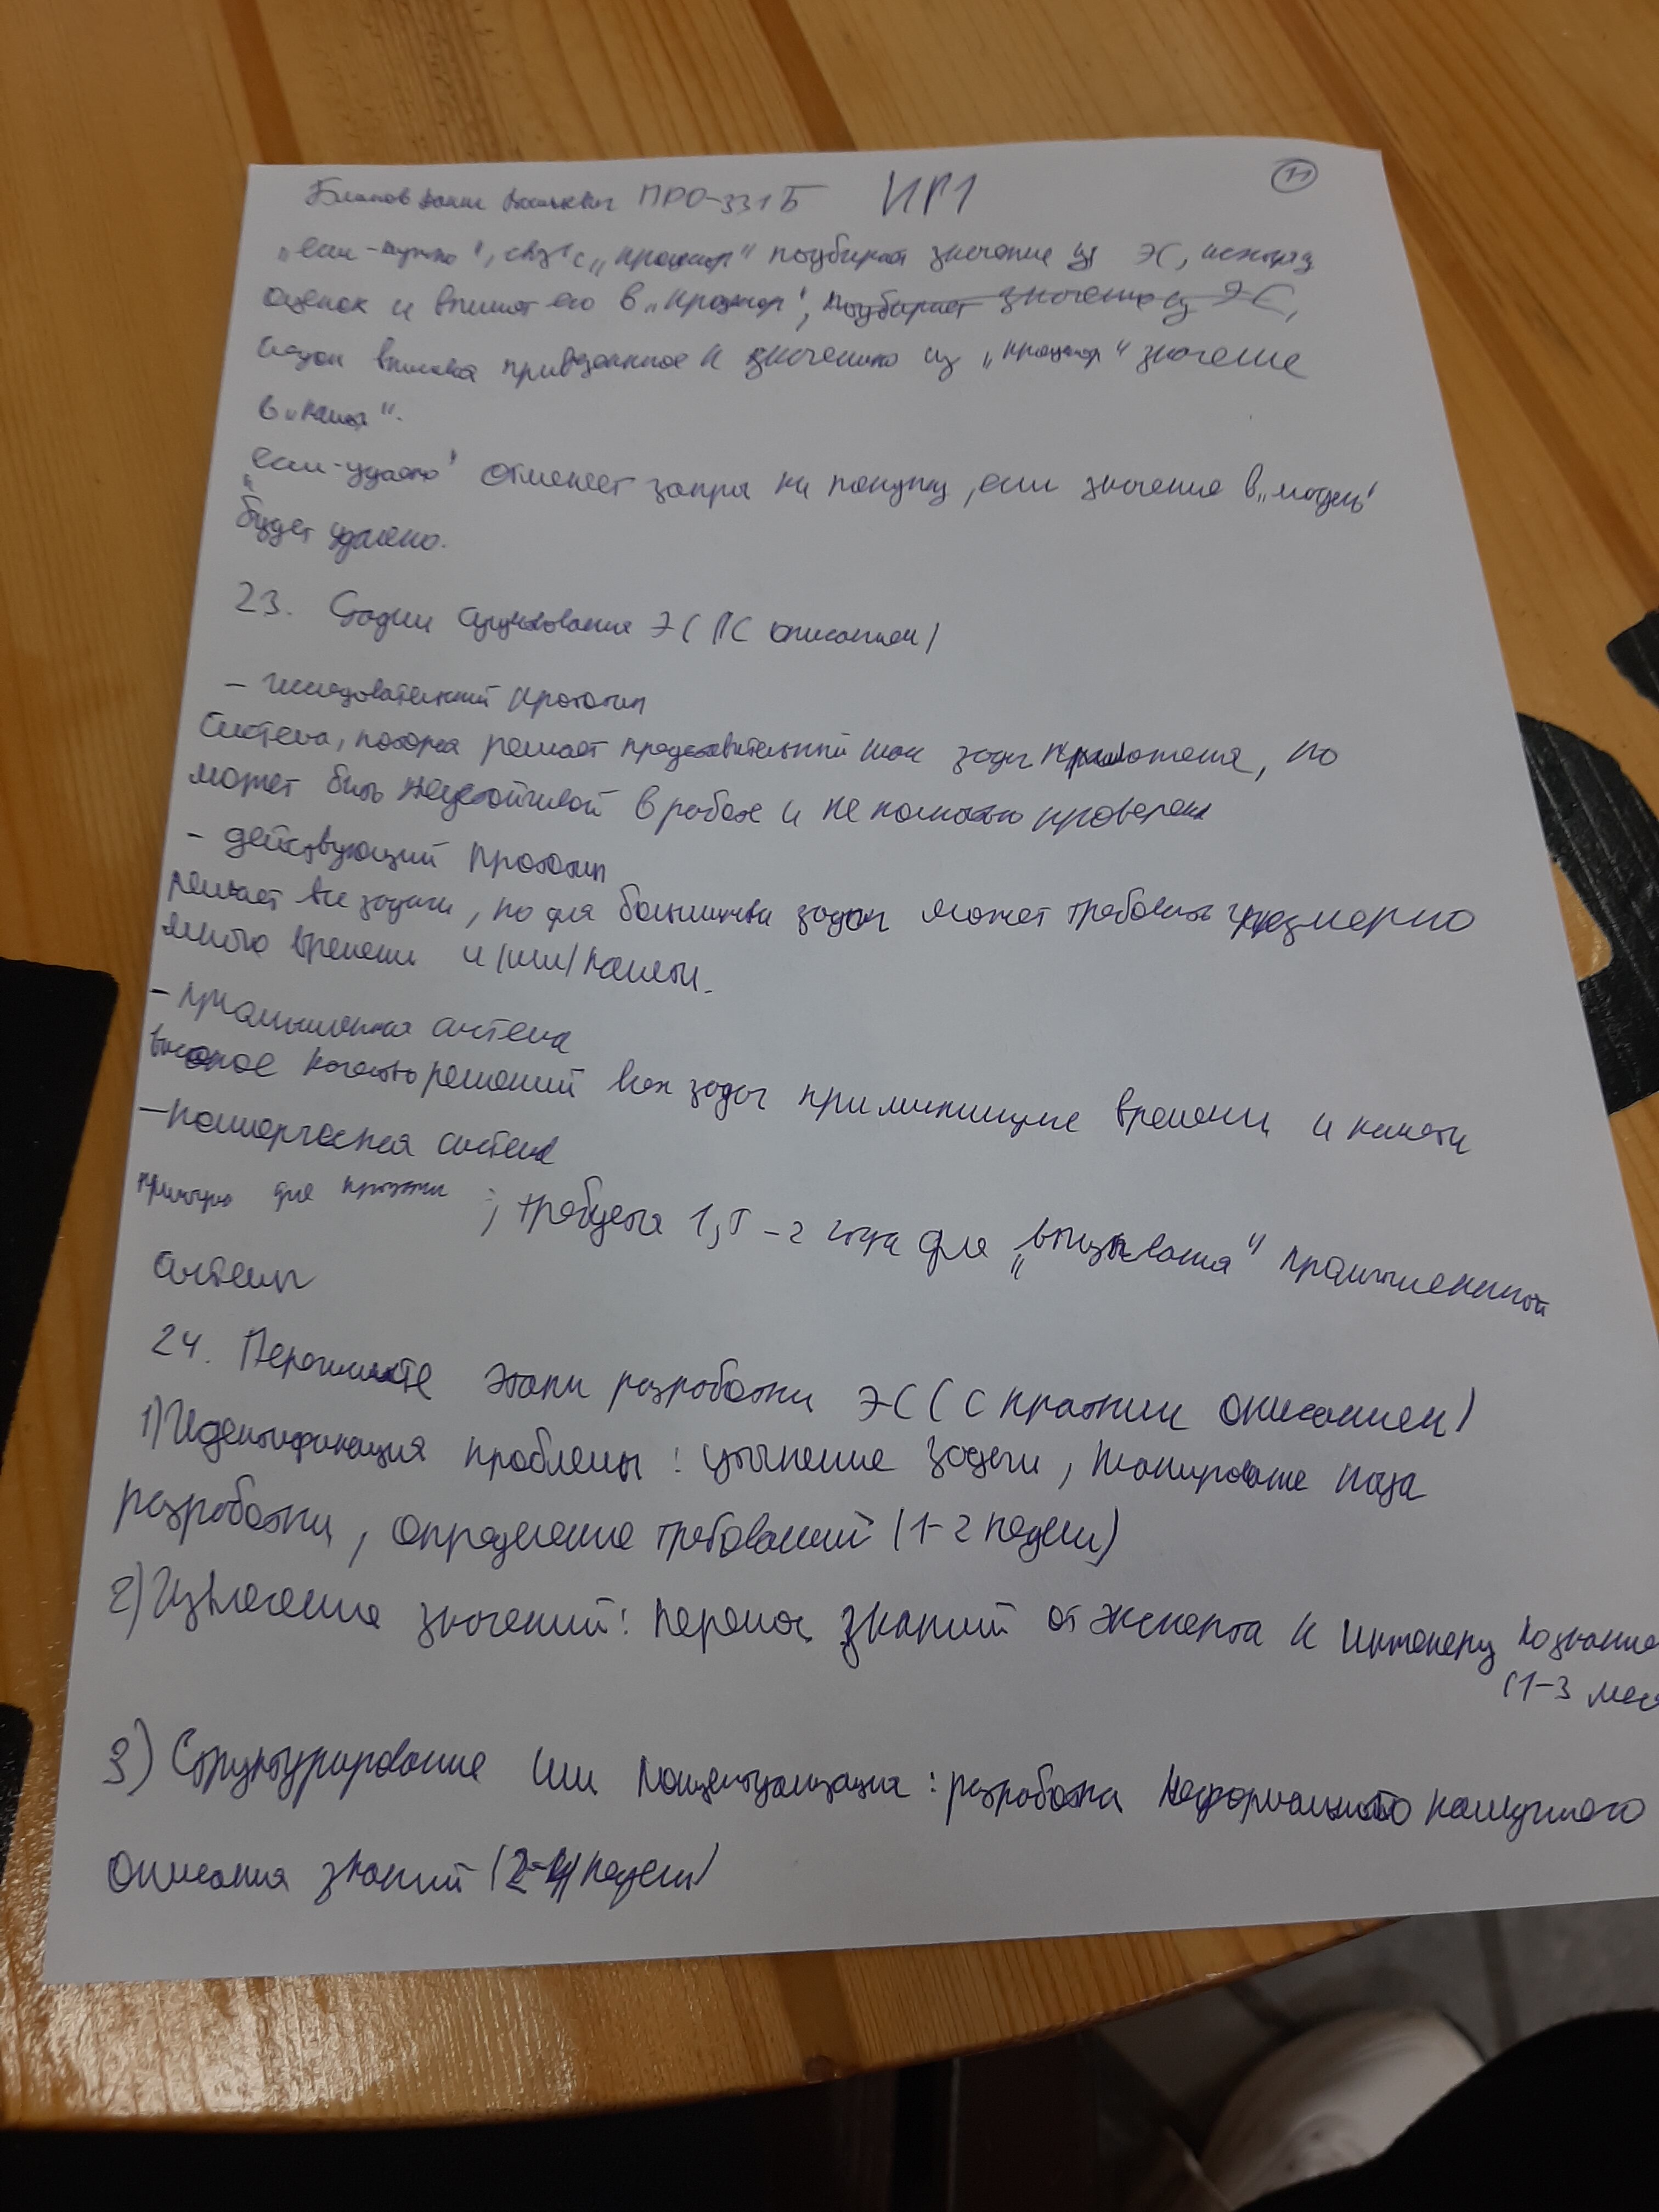 Блинов ПРО-331Б ИР1 11
„если-нужно", „процессор" подбирает значение из ЭС, исходя из
оценок и впишет его в „процессор", подбирает значение из ЭС,
значению из „процессор" значение
в
„если-удалено" отменяет запрос на покупку, если значение в „модель"
будет удалено.
23. Стадии существования ЭС (с описанием)
– исследовательский прототип
Система, которая решает представительный класс задач приложения, но
может быть неустойчивой в работе и не полностью проверена
– действующий прототип
решает все задачи, но для большинства задач может требовать чрезмерно
много времени и (или) памяти.
– промышленная система
высокое качество решений всех задач при минимуме времени и памяти
– коммерческая система
пригодна для продажи; требуется 1,5 – 2 года для промышленной
системы
24. Перечислите этапы разработки ЭС (с кратким описанием)
1) Идентификация проблемы: уточнение задачи, планирование хода
разработки, определение требований (1–2 недели)
2) Извлечение значений: перенос знаний от эксперта к инженеру по знание
(1–3 мес
3) Структурирование или концептуализация: разработка неформального наглядного
описания знаний (2–4 недели)